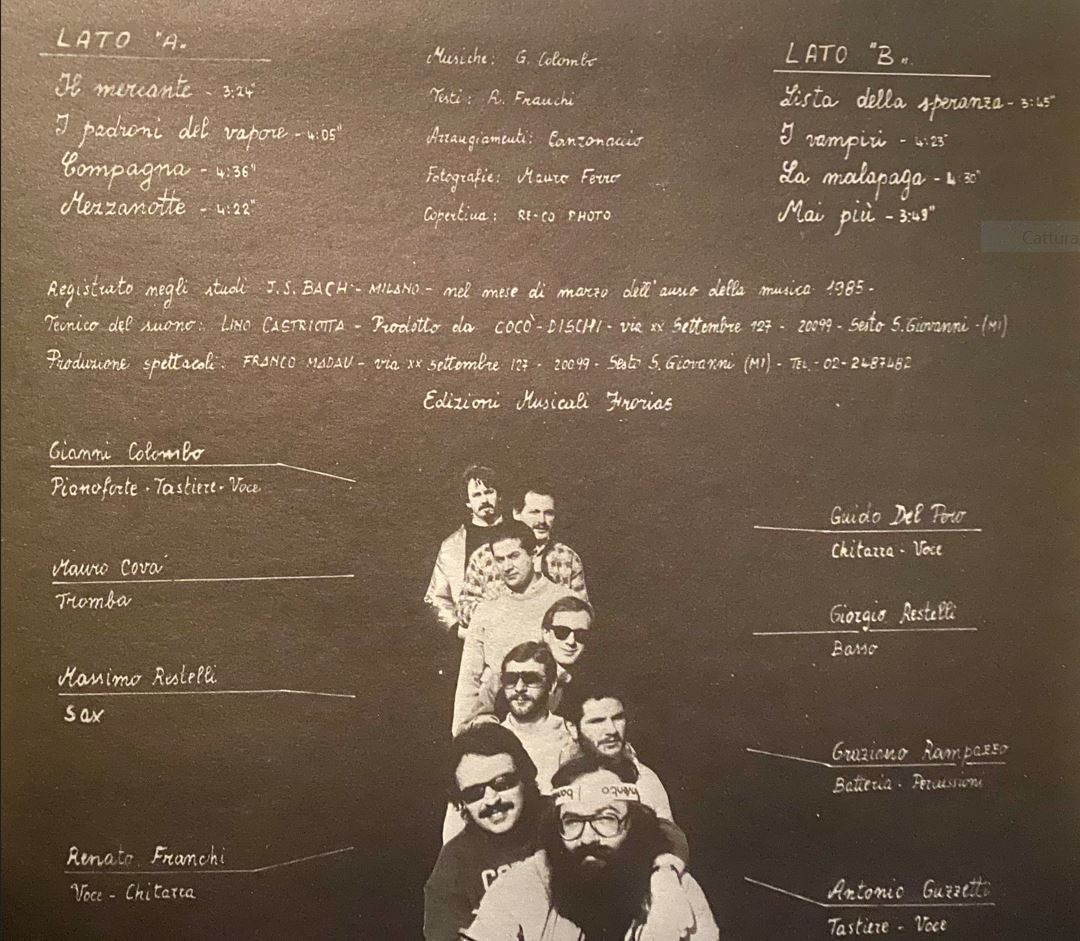 LATO "A"
Il mercante - 3:24"
I padroni del vapore - 4:05"
Compagna - 4:36"
Mezzanotte - 4:22"
Musiche: G. Colombo
Testi: R. Franchi
Arrangiamenti: Canzonaccio
Fotografie: Mauro Ferro
Copertina: RE-CO PHOTO
LATO "B"
Lista della speranza - 3:45"
I vampiri - 4:23"
La malapaga - 4:30"
Mai più - 3:49"
Cattura
Registrato negli studi J.S. BACH - MILANO - nel mese di marzo dell'anno della musica 1985 -
Tecnico del suono: LINO CASTRIOTTA - Prodotto da COCÒ-DISCHI - via xx Settembre 127 - 20099 - Sesto S. Giovanni - (MI)
Produzione spettacoli: FRANCO MADAU - via xx settembre 127 - 20099 - Sesto S. Giovanni (MI) - TEL - 02 - 2487482
Edizioni Musicali Frorias
Gianni Colombo
Pianoforte - Tastiere - Voce
Mauro Cova'
Tromba
Massimo Restelli
Sax
Renato Franchi
Voce - Chitarra
Guido Del Poro
Chitarra - Voce
Giorgio Restelli
Basso
Graziano Rampazzo
Batteria - Percussioni
Antonio Guzzetti
Tastiere - Voce